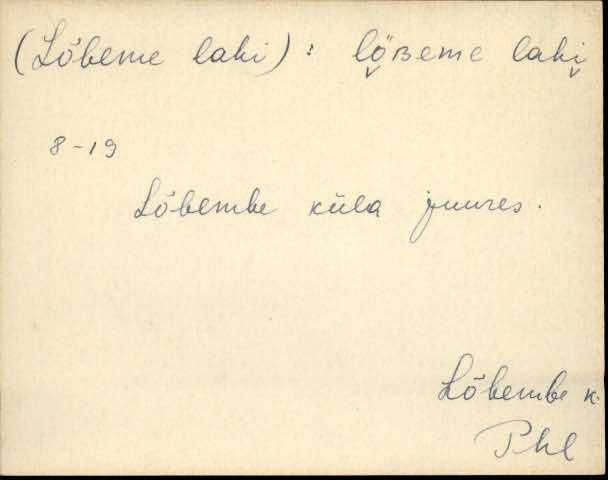 (Lõbeme laki) : lö̬ʙeme laki̬
8-19
Lõbembe küla juures.
Lõbembe k.
Phl